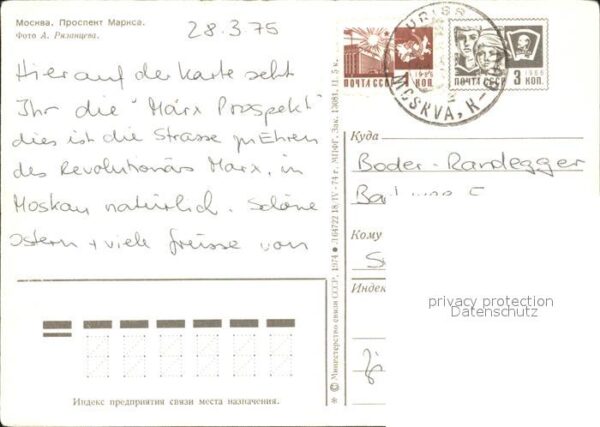 Москва. Проспект Маркса.
Фото А. Рязанцева.
28.3.75
Hier auf der Karte seht
Ihr die "Marx Prospekt"
dies ist die Strasse zu Ehren
des Revolutionärs Marx, in
Moskau natürlich. Schöne
Ostern + viele Grüsse von
Индекс предприятия связи места назначения.
© Министерство связи СССР. 1974
18/IV - 74 г. МПФГ. Зак. Ц. 5 к.
ПОЧТА СССР 1 КОП.
1966
ПОЧТА СССР 3 КОП.
1966
MOSKVA,
Куда
Boder-Randegger
Кому
Индек
privacy protection
Datenschutz